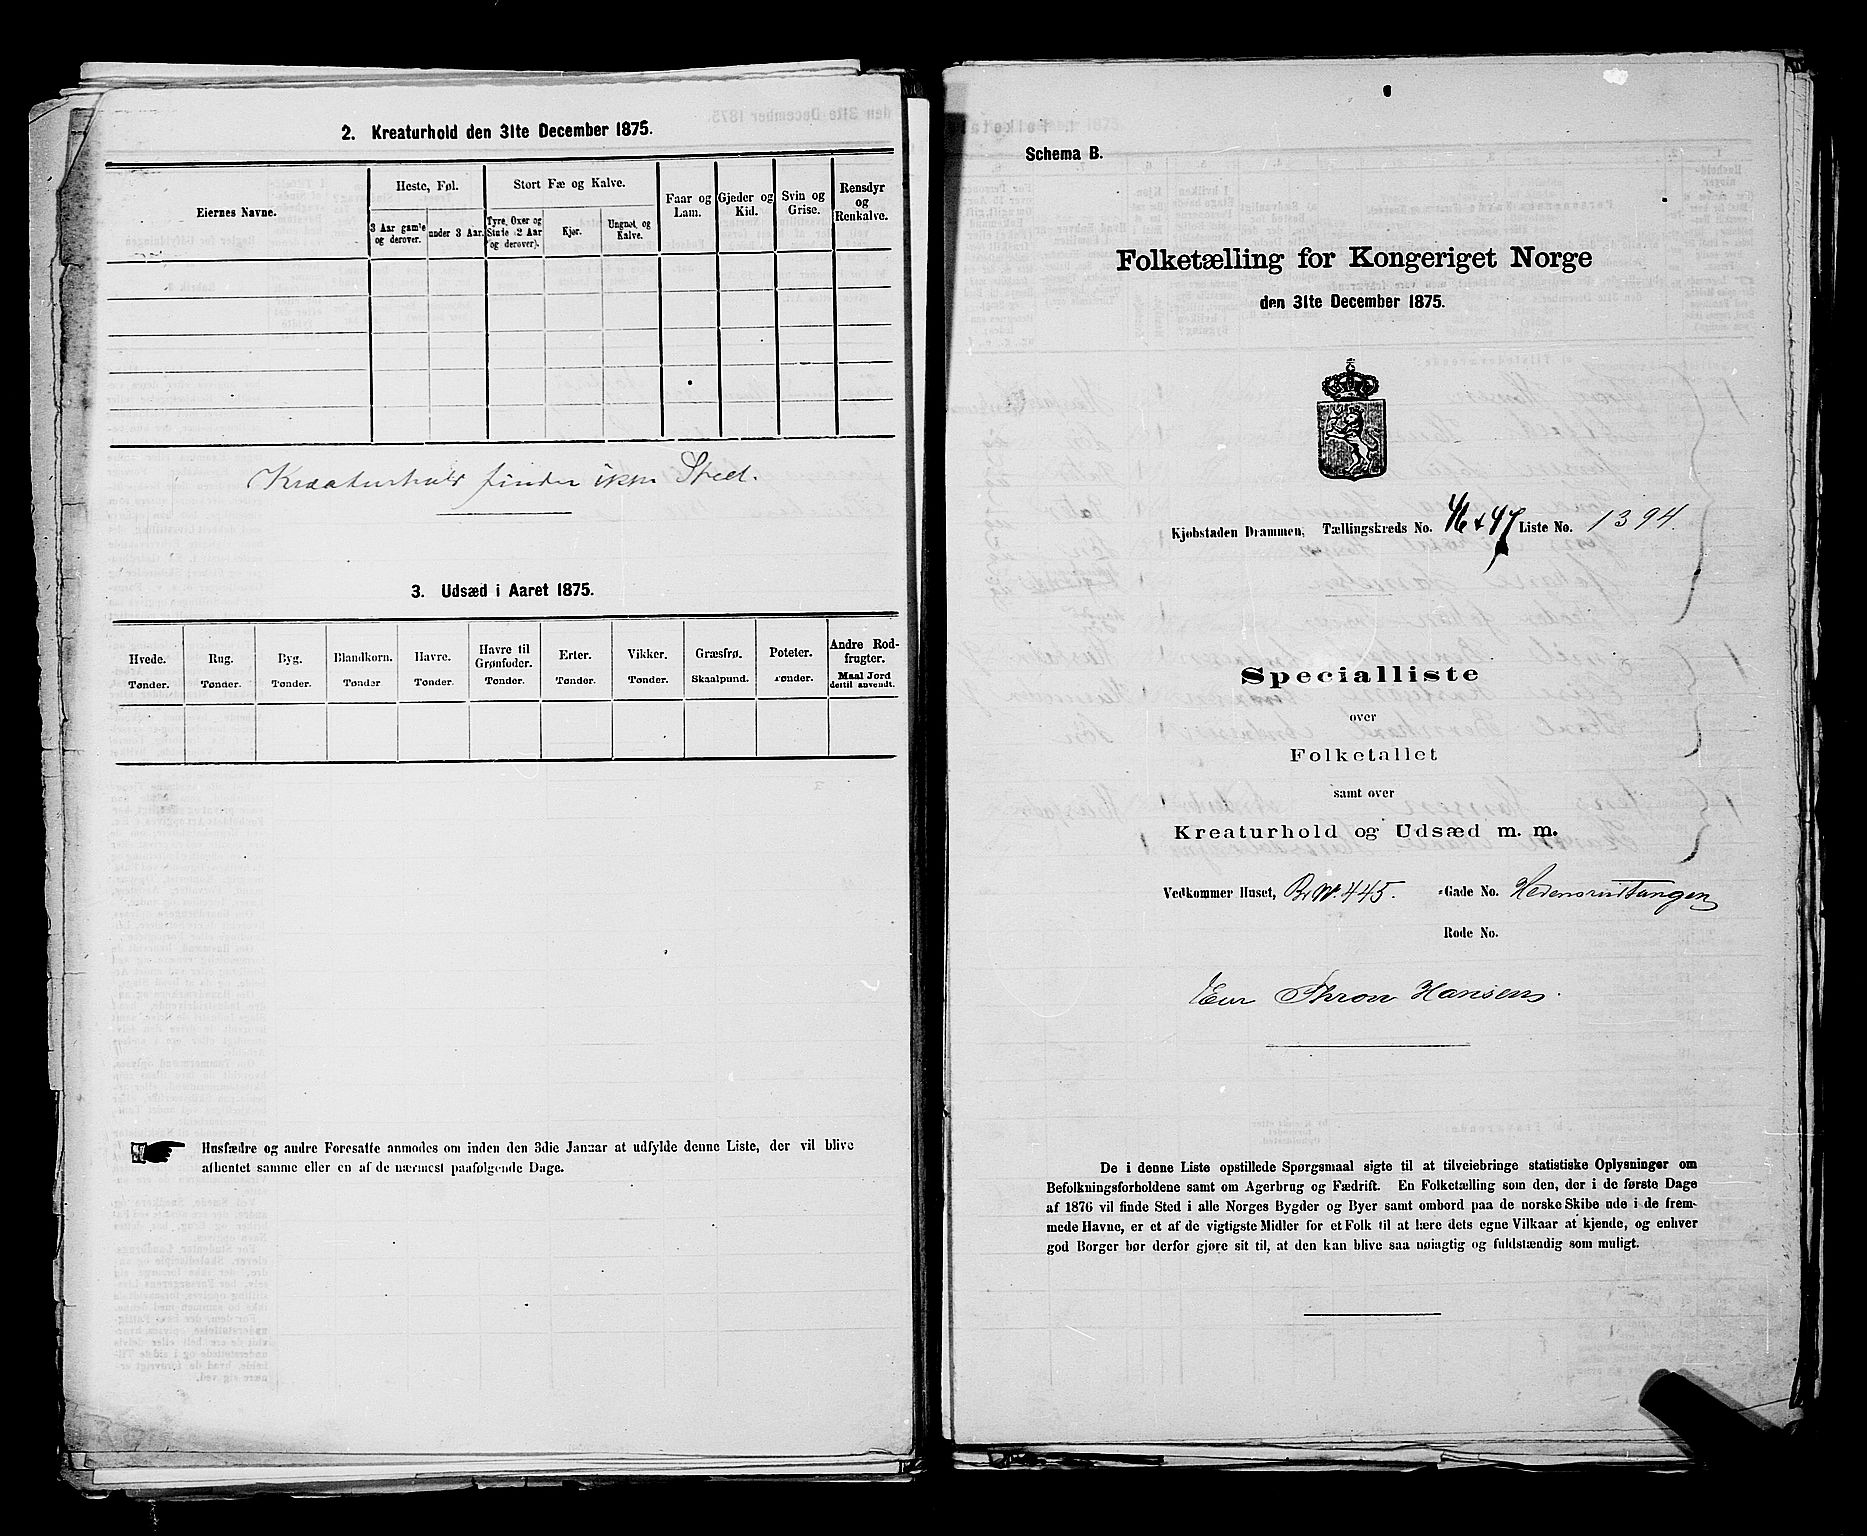 2. Kreaturhold den 31te December 1875.
Eiernes Navne.
Heste, Føl.
Stort Fæ og Kalve.
Faar og
Lam.
Gjeder og
Kid.
Svin og
Grise.
Rensdyr
og
Renkalve.
3 Aar gamle
og derover.
under 3 Aar.
Tyre, Oxer og
Stude (2 Aar
og derover).
Kjør.
Ungnøt og
Kalve.
Kreaturhold finder ikke Sted.
3. Udsæd i Aaret 1875.
Hvede.
Tønder.
Rug.
Tønder.
Byg.
Tønder.
Blandkorn.
Tønder
Havre.
Tønder.
Havre til
Grønfoder.
Tønder.
Erter.
Tønder.
Vikker.
Tønder.
Græsfrø.
Skaalpund.
Poteter.
Tønder.
Andre Rod-
frugter.
Maal Jord
dertil anvendt.
Husfædre og andre Foresatte anmodes om inden den 3die Januar at udfylde denne Liste, der vil blive
afhentet samme eller en af de nærmest paafølgende Dage.
Schema B.
Folketælling for Kongeriget Norge
den 31te December 1875.
Kjøbstaden Drammen, Tællingskreds No. 46 & 47 Liste No. 1394.
Specialliste
over
Folketallet
samt over
Kreaturhold og Udsæd m. m.
Vedkommer Huset, Br No. 445. -Gade No. Hedensrudtangen
Rode No.
Eier Thron Hansens.
De i denne Liste opstillede Spørgsmaal sigte til at tilveiebringe statistiske Oplysninger om
Befolkningsforholdene samt om Agerbrug og Fædrift. En Folketælling som den, der i de første Dage
af 1876 vil finde Sted i alle Norges Bygder og Byer samt ombord paa de norske Skibe ude i de frem-
mede Havne, er et af de vigtigste Midler for et Folk til at lære dets egne Vilkaar at kjende, og enhver
god Borger bør derfor gjøre sit til, at den kan blive saa nøiagtig og fuldstændig som muligt.